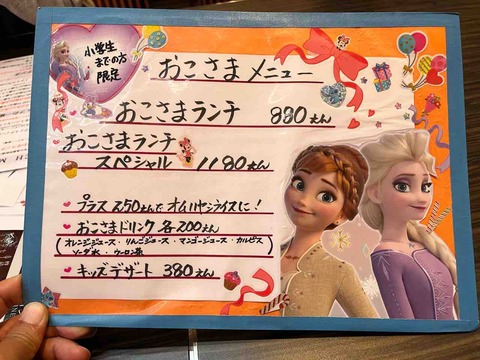 小学生
までの方
限定
おこさまメニュー
おこさまランチ 880えん
おこさまランチ
スペシャル 1180えん
プラス250えんで オムハヤシライスに！
おこさまドリンク 各200えん
(オレンジジュース・りんごジュース・マンゴージュース・カルピス
ソーダ水・ウーロン茶)
キッズデザート 380えん